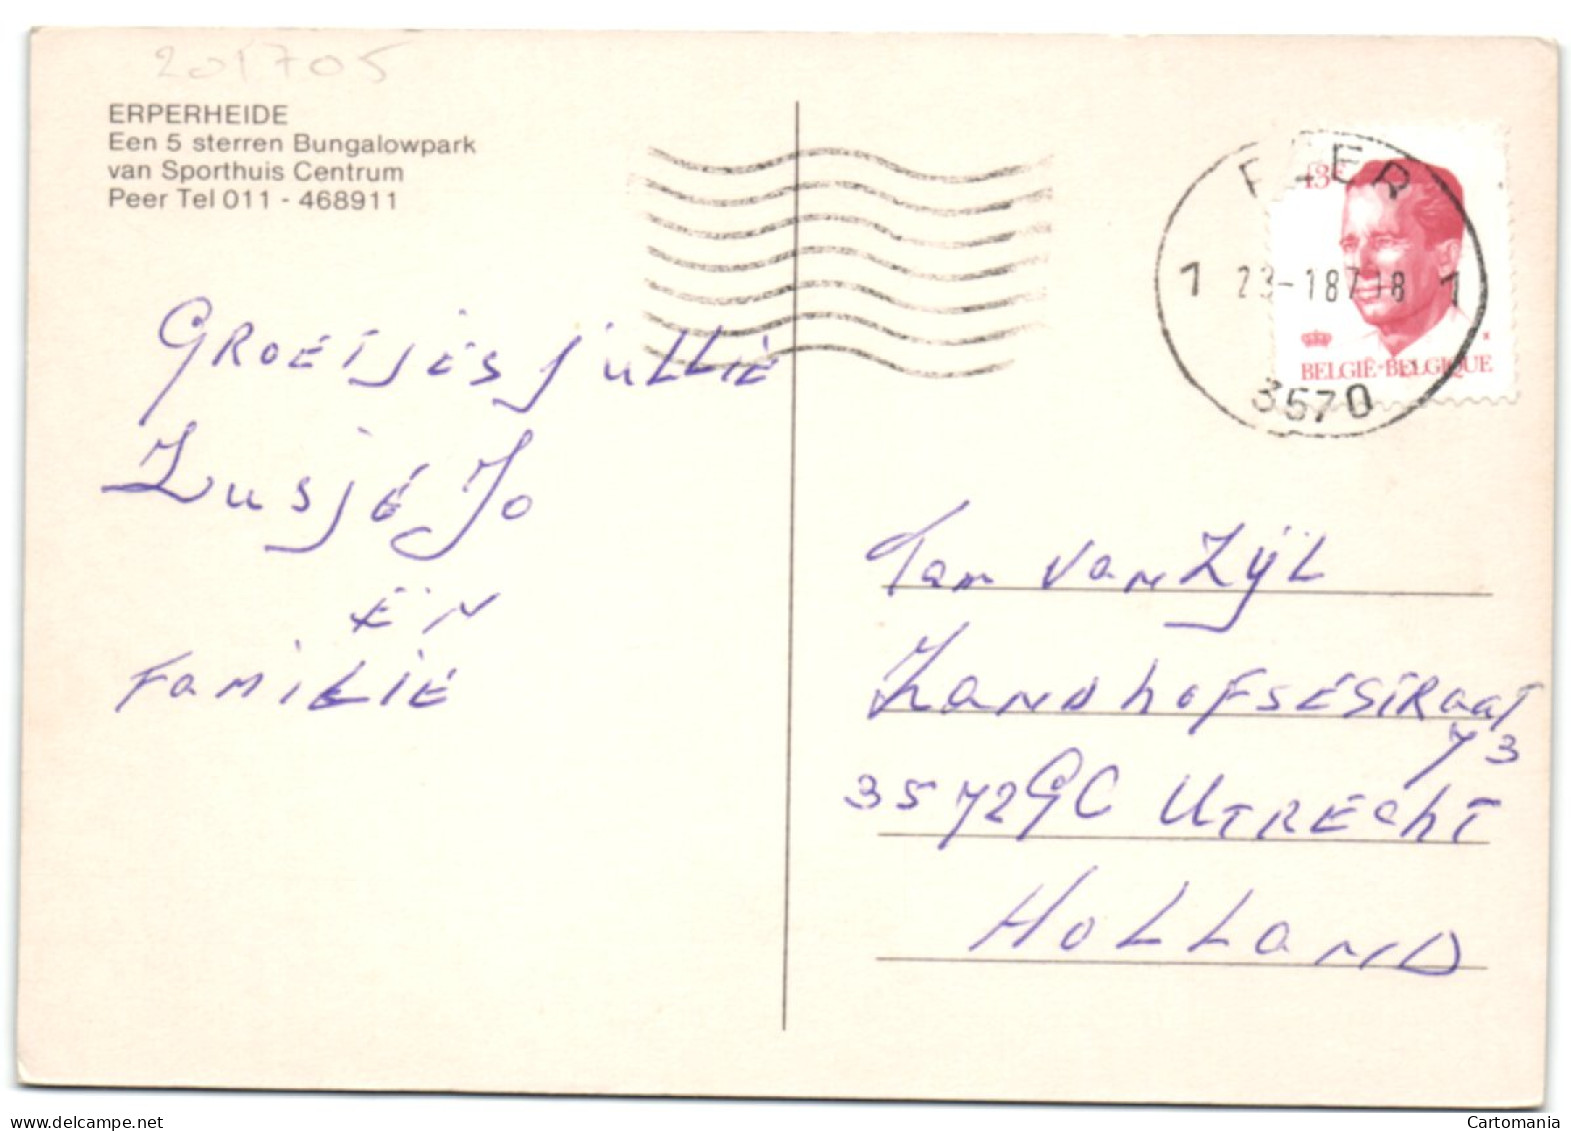 201705
ERPERHEIDE
Een 5 sterren Bungalowpark
van Sporthuis Centrum
Peer Tel 011 - 468911
PEER
13
1 23-1 87 18 1
BELGIË-BELGIQUE
3570
GROETJES JULLIE
ZUSJE JO
EN
FAMILIE
Fam van Zÿl
ZANDHOFSESTRAAT
73
3572GC UTRECHT
HOLLAND
delcampe.net
Cartomania